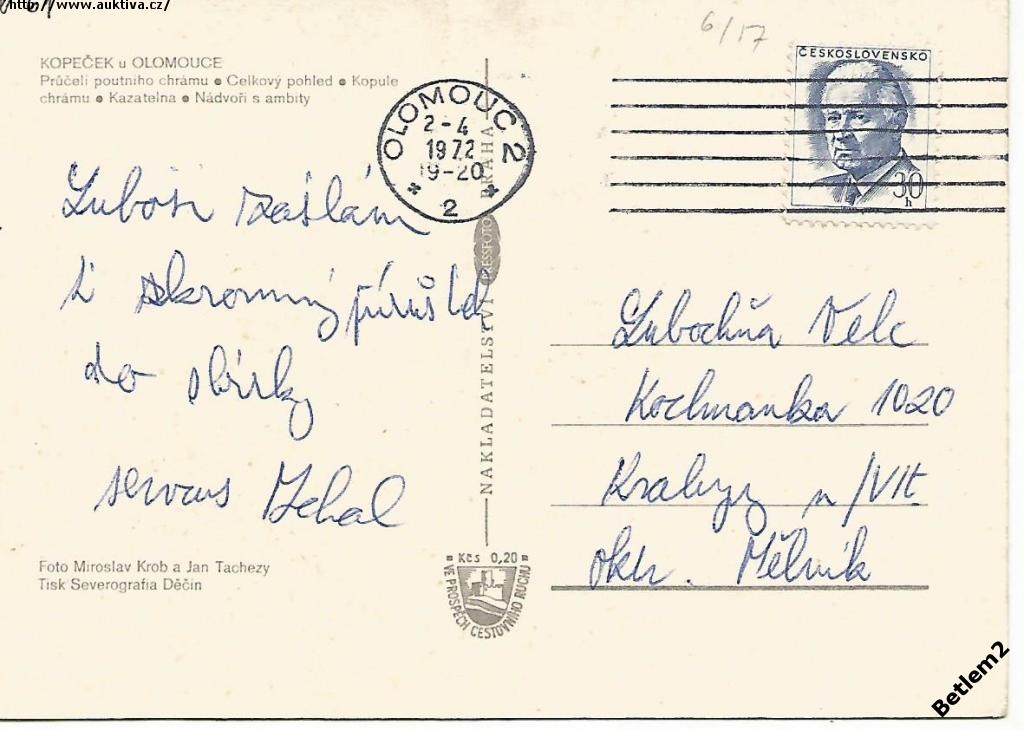 http://www.auktiva.cz/
6/17
KOPEČEK u OLOMOUCE
Průčelí poutního chrámu • Celkový pohled • Kopule
chrámu • Kazatelna • Nádvoří s ambity
OLOMOUC 2
2-4
1972
19-20
* 2 *
ČESKOSLOVENSKO
30
h
Luboši zašlám
ti skromný
do sbírky
servus
NAKLADATELSTVÍ PRESSFOTO PRAHA
Lubochňa Velc
1020
Kralupy n/Vlt
okr. Mělník
Foto Miroslav Krob a Jan Tachezy
Tisk Severografia Děčín
Kčs 0,20
VE PROSPĚCH CESTOVNÍHO RUCHU
Betlem2